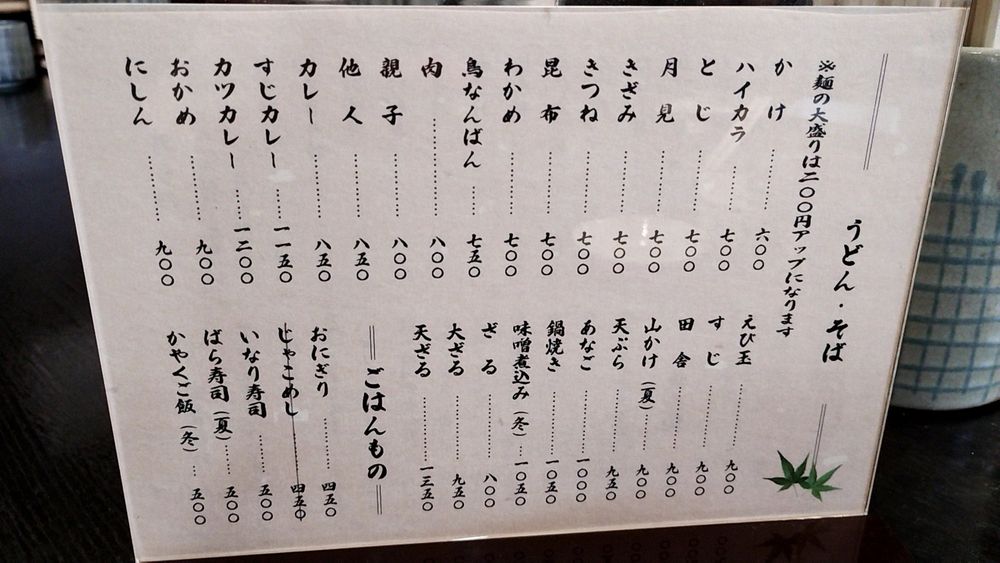 うどん・そば
※麺の大盛りは二〇〇円アップになります
かけ………六〇〇
ハイカラ………七〇〇
とじ………七〇〇
月見………七〇〇
きざみ………七〇〇
きつね………七〇〇
昆布………七〇〇
わかめ………七〇〇
鳥なんばん……七五〇
肉………八〇〇
親子………八〇〇
他人………八五〇
カレー………八五〇
すじカレー……一一五〇
カツカレー……一二〇〇
おかめ………九〇〇
にしん………九〇〇
えび玉………九〇〇
すじ………九〇〇
田舎………九〇〇
山かけ（夏）………九〇〇
天ぷら………九五〇
あなご………一〇〇〇
鍋焼き………一〇五〇
味噌煮込み（冬）…一〇五〇
ざる………八〇〇
大ざる………九五〇
天ざる………一三五〇
ごはんもの
おにぎり………四五〇
じゃこめし………四五〇
いなり寿司……五〇〇
ばら寿司（夏）……五〇〇
かやくご飯（冬）…五〇〇